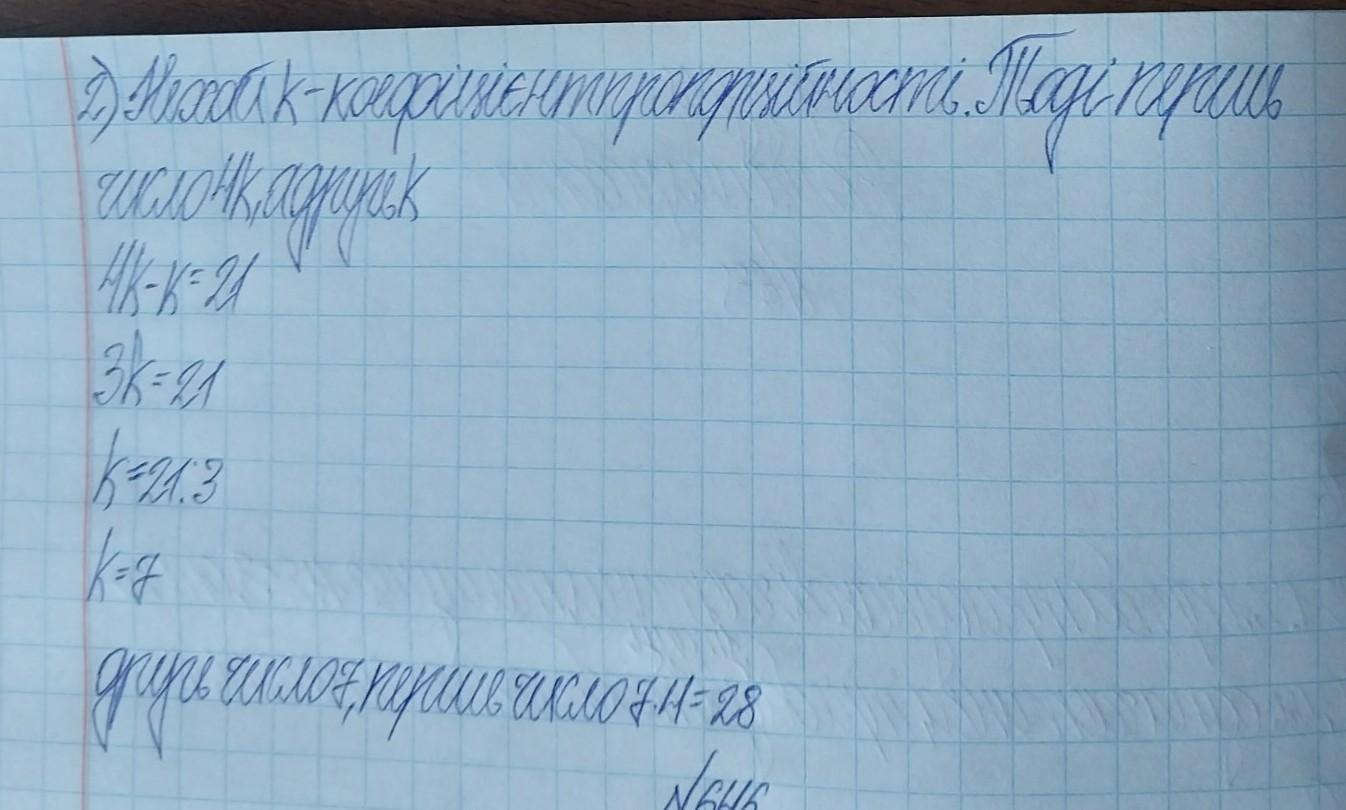 2) Нехай k-коефіцієнт пропорційності. Тоді перше
число 4k, а друге k
4k-k=21
3k=21
k=21:3
k=7
друге число 7, перше число 7·4=28
№646